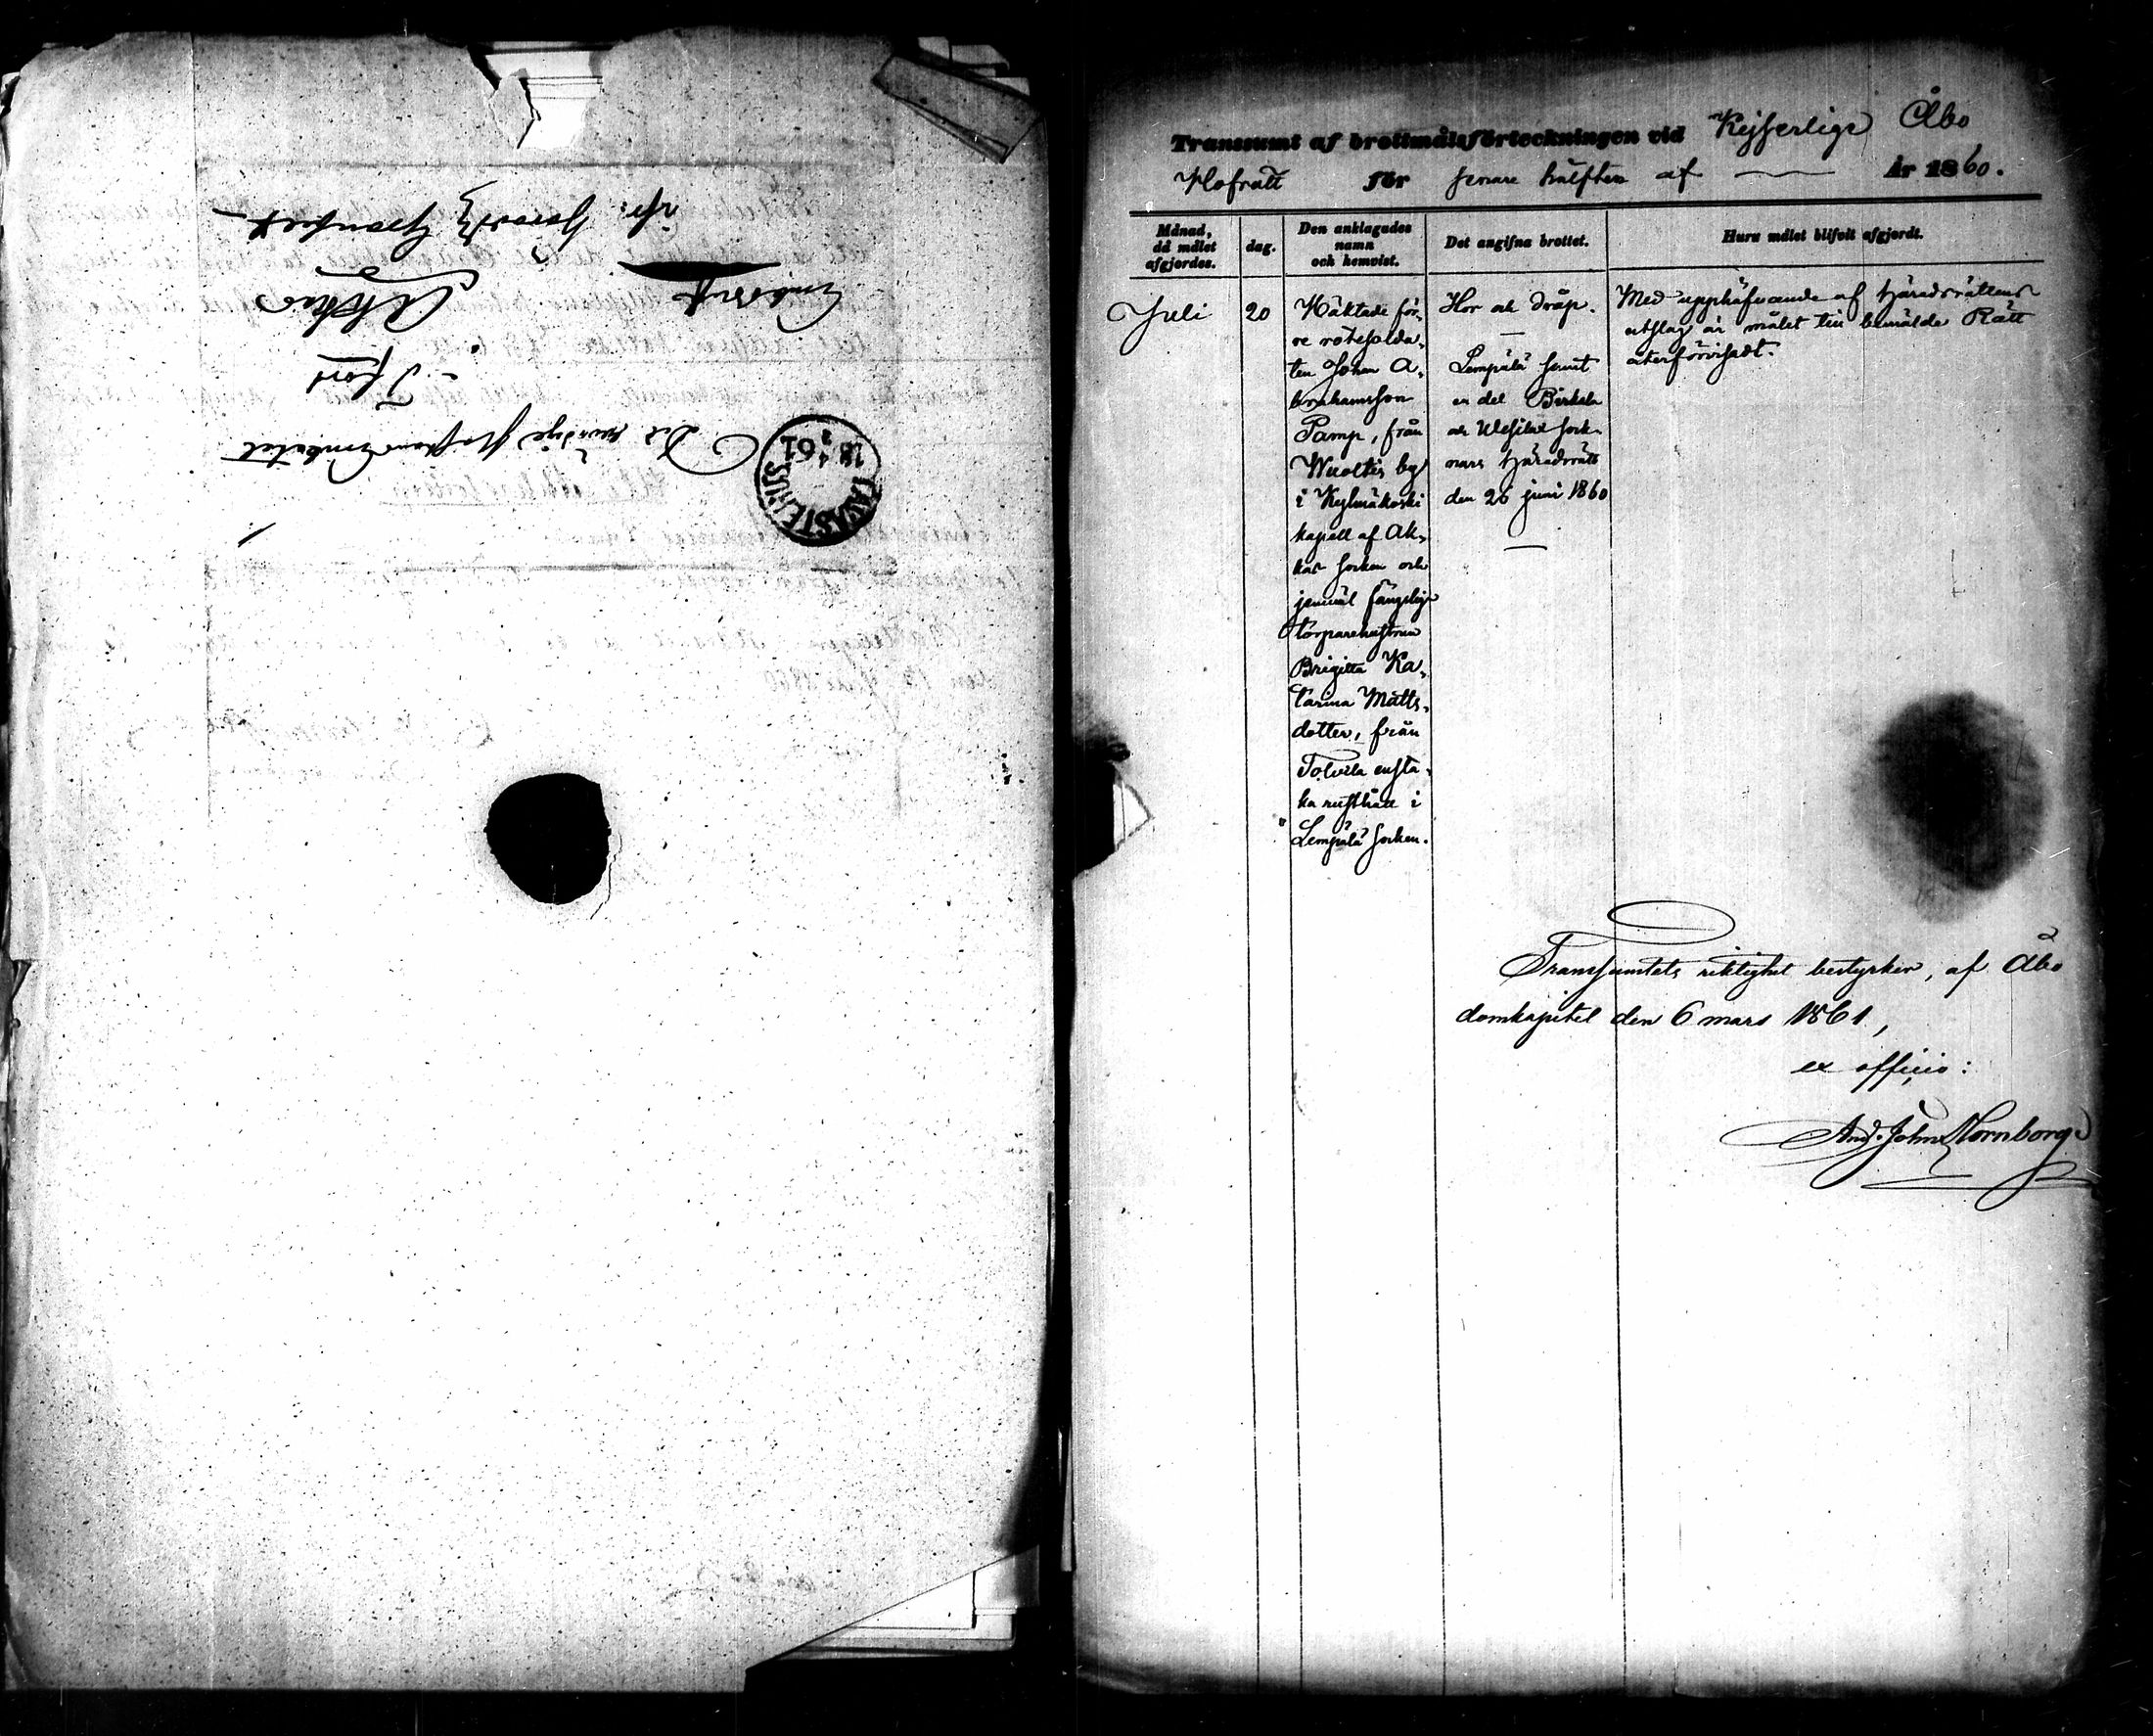 Det
Embetet
TAVASTEHUS
18 61
Transsumt af brottmålsförteckningen vid Kejserliga Åbo
Hofrätt för senare hälften af År 1860.
Månad, då målet afgjordes.
dag.
Den anklagades namn och hemvist.
Det angifna brottet.
Huru målet blifvit afgjordt.
Juli
20
Häktade för-
re rotesolda-
ten Johan A-
brahamsson
Pamp, från
Wuoltis by
i Kylmäkoski
kapell af Ak-
kas socken och
jemväl fängslige
torparehustrun
Brigitta Ka-
tarina Matts-
dotter, från
Tolvila ensta-
ka rusthåll i
Lempälä socken.
Hor och dråp.
Lempälä samt
en del Birkala
och Wesilax sock-
nars Häradsrätt
den 26 juni 1860
Med upphäfvande af Häradsrättens
utslag är målet till bemälde Rätt
återförvisadt.
Transsumtets riktighet bestyrker, af Åbo
domkapitel den 6 mars 1861,
ex officio:
And. John Hornborg